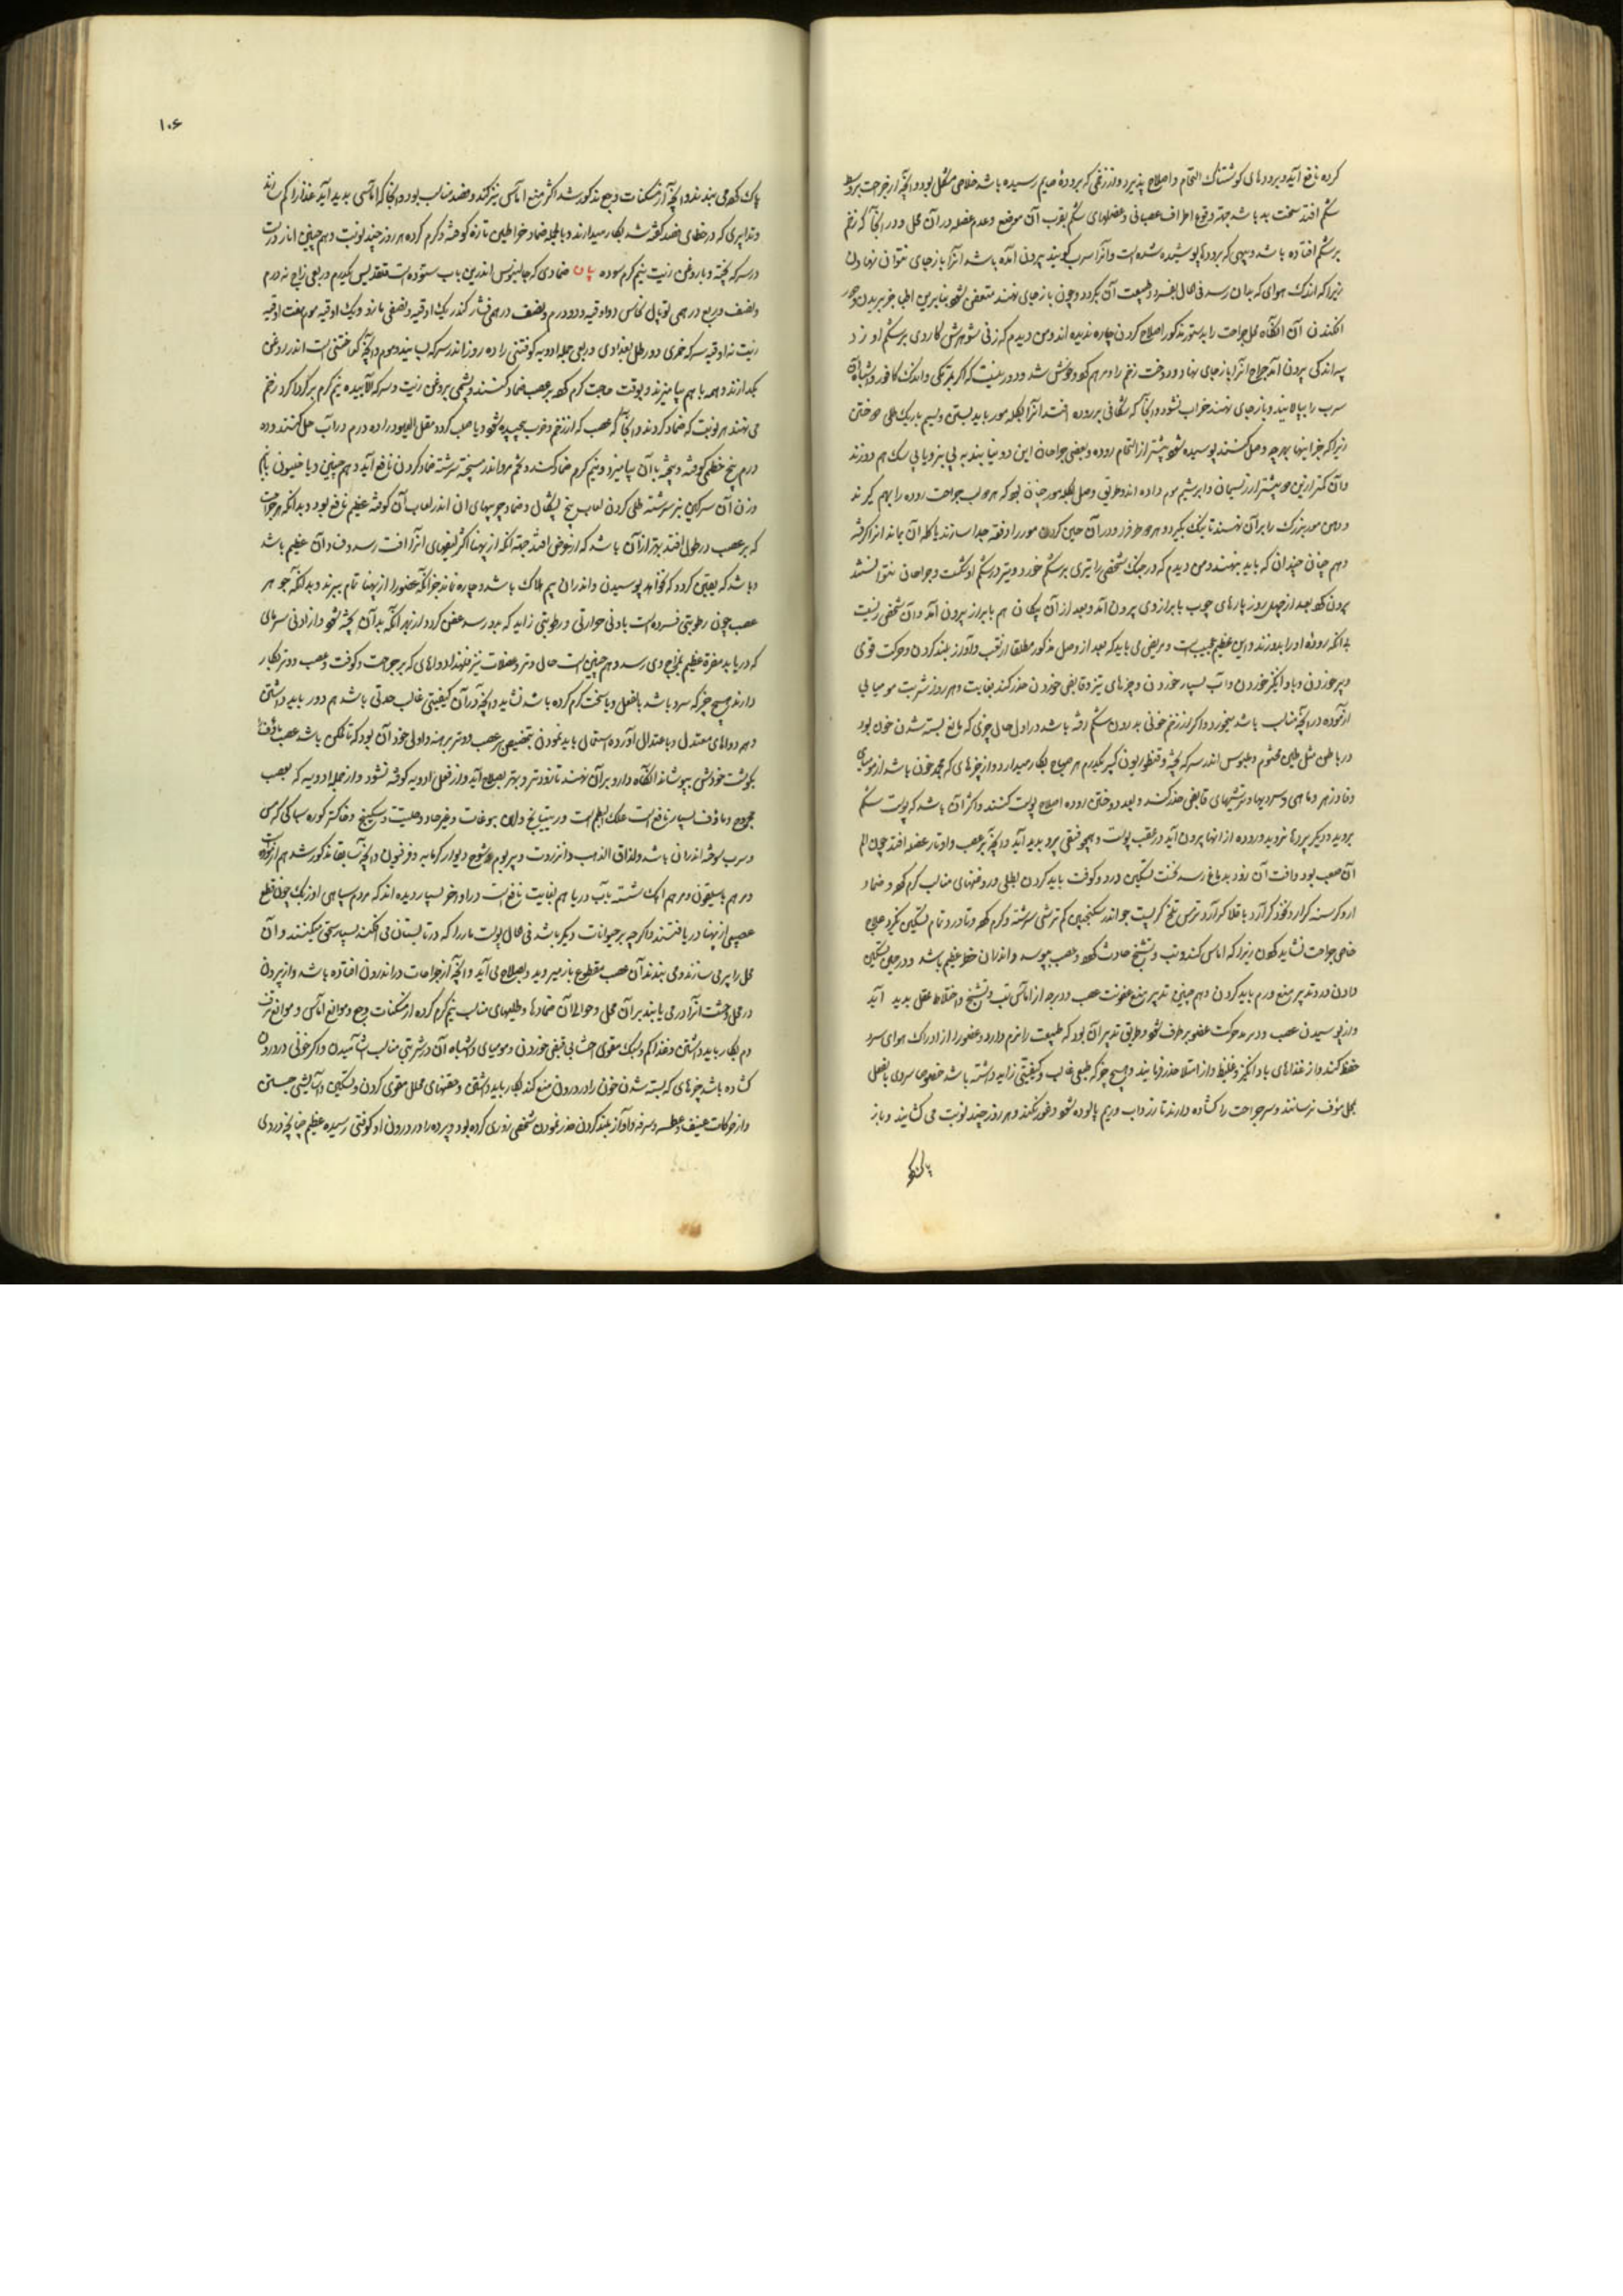 کرده نافع آید و برودهای کوشتناک التحام و اصلاح پذیرد و از زخمی که برودۀ صایم رسیده باشد خلاصی مشکل بود و آنچه از جراحت بر وسط
شکم افتد سخت بد باشد جهة وقوع اطراف عصبانی و عضلهای شکم بقرب آن موضع و عدم عضله در آن محل و در آنجا که زخم
بر شکم افتاده باشد و پیهی که برودها پوشیده شده است و آنرا سرب کویند بیرون آمده باشد آنرا باز جای نتوان نهادن
زیرا که اندک هوای که بدان رسد فی الحال بفسرد و طبیعت آن بکردد و چون باز جای نهند متعفن شود بنابرین اطبا جز بریدن و دور
افکندن آن آنگاه محل جراحت را بدستور مذکور اصلاح کردن چاره ندیده اند و من دیدم که زنی شوهرش کاردی بر شکم او زد
پیه اندکی بیرون آمد جراح آنرا باز جای نهاد و دوخت زخم را و مرهم کرد و خوش شد و دور نیست که اکر بترکی و اندک کافور و اشباه آن
سرب را بپالایند و باز جای نهند خراب نشود و آنجا که شکافی بر روده افتد آنرا بکله مور باید بستن و بسیم باریک طلی دوختن
زیرا که جز اینها بهرچه وصل کنند پوسیده شود پیشتر از التحام روده و بعضی جراحان این دو نیابند به پی بز و یا پی سک هم دوزند
و آن کمتر ازین دو پیشتر از ریسمان و ابریشم موم داده اند و طریق وصل بکله مور چنان بود که هر دو لب جراحت روده را بهم کیرند
و دهن مور بزرک را بر آن نهند تا نیک بکیرد و هر دو طرف در آن حین کردن مور را دفعة جدا سازند تا کله آن بماند آنرا کرفته
و هم چنان چندان که باید بنهند و من دیدم که در جنک شخصی را تیری بر شکم خورد و تیر در شکم او شکست و جراحان نتوانستند
بیرون کرد بعد از چهل روز پارهای چوب با براز وی بیرون آمد و بعد از آن پیکان هم با براز بیرون آمد و آن شخص زیست
بی آنکه رودۀ او را بدوزند و این عظیم عجیب است و مریض می باید که بعد از وصل مذکور مطلقا از تعب و آواز بلند کردن و حرکت قوی
و پر خوردن و باد انکیز خوردن و آب بسیار خوردن و چیزهای تیز و قابض خوردن حذر کند بغایت و هر روز شربت مومیائی
آزموده در آنچه مناسب باشد میخورد و اکر از زخم خونی بدرون شکم رفته باشد در اول حال چیزی که مانع بسته شدن خون بود
در باطن مثل طین مختوم و جلبوس اندر سرکه پخته و قنطوریون کبیر یکدرم هر صباح بکار میدارد و از چیزهای که مجمد خون باشد از مومیای
و فادزهر و ماهی و سردیها و ترشیهای قابض حذر کند و بعد دوختن روده اصلاح پوست کنند و اکثر آن باشد که پوست شکم
بروید و دیکر پردها نروید و روده از آنها بیرون آید در عقب پوست و همچو فتقی پرد پدید آید و آنچه بر عصب و اوتار عضله افتد چون الم
آن صعب بود و آفت آن زود بدماغ رسد نخست تسکین درد و کوفت باید کردن بطلی و روغنهای مناسب کرم کرد و ضماد
آرد کرسنه کر آرد نخود کر آرد باقلا کر آرد ترمس تلخ کر بست جو اندر سکنجبین کم ترشی سرشته و کرم کرد و تا درد تمام تسکین نکیرد علاج
خاص جراحت نشاید کردن زیرا که اماس کند و تب و تشنج حادث کرد و عصب بپوسد و اندر آن خطر عظیم باشد و در حین تسکین
دادن درد تدبیر منع ورم باید کردن و هم چنین تدبیر منع عفونت عصب و در چه از اماس تب و تشنج و اختلاط عقل پدید آید
و از پوسیدن عصب و در بد حرکت عضو بر طرف شود و طریق تدبیر آن بود که طبیعت را نرم دارد و عضو را از ادراک هوای سرد
حفظ کنند و از غذاهای باد انکیز و غلیظ و از امتلا حذر فرمایند و هیچ چیز که طعمی غالب و کیفیتی زاید داشته باشد خصوصا سردی بالفعل
بمحل مؤف نرسانند و سر جراحت را کشاده دارند تا زرداب و ریم پالوده شود و غور نکند و هر روز چند نوبت می کشایند و باز
پاک کرد
۱۰۶
پاک کرد می بندند و آنچه از مسکنات وجع مذکور شد اکثر منع اماس نیز کند و فصد مناسب بود و آنجا که اماسی پدید آید غذا را کم سازند
و تدابیری که در خطای فصد کفته شد بکار میدارند و بالجمله ضماد خراطین تازه کوفته و کرم کرده هر روز چند نوبت و هم چنین انار درست
در سرکه پخته و با روغن زیت نیم کرم سوده بیان ضمادی که جالینوس اندرین باب ستوده است قلقدیس یکدرم و ربعی زاج نه درم
و نصف و ربع درهمی توبال نحاس دو اوقیه و دو درم و نصف درهمی قشار کندر یک اوقیه و نصفی بازو و یک اوقیه موم هفت اوقیه
زیت نه اوقیه سرکه خمری دو رطل بغدادی و ربعی جمله ادویه کوفتنی را ده روز اندر سرکه بسایند و موم و آنچه کداختنی است اندر روغن
بکدازند و همه باهم بیامیزند و بوقت حاجت کرم کرده بر عصب ضماد کنند و پشمی بروغن زیت و سرکه آلاییده نیم کرم بر کرداکرد زخم
می نهند هر نوبت که ضماد کردند و آنجا که عصب کر از زخم و ضرب پیچیده شود و یا صلب کردد مقل الیهود را ده درم در آب حل کنند و ده
درم بیخ خطمی کوفته و پخته با آن بیامیزند و نیم کرم ضماد کنند و تخم مرو اندر میبختج سرشته ضماد کردن نافع آید و هم چنین دیاخیلون با
وزن آن سرکین بز سرشته طلی کردن لعاب بیخ لبلاب و ضماد چربیهای آن اندر لعاب آن کوفته عظیم نافع بود و بدانکه هر جراحت
که بر عصب در طول افتد بهتر از آن باشد که از عرض افتد جهة آنکه از پهنا اکثر لیفهای آنرا آفت رسد و فساد آن عظیم باشد
و باشد که یقین کردد که خواهد پوسیدن و اندر آن بیم هلاک باشد و چاره نماند جز آنکه عضو را از پهنا تمام ببرند و بدانکه جوهر
عصب چون رطوبتی فسرده است بادنی حرارتی و رطوبتی زاید که بدو رسد عفن کردد از بهر آنکه بدان پخته شود و از ادنی سرمای
که دریابد مضرة عظیم بمزاج وی رسد و هم چنین است حال وتر و عضلات نیز فلهذا دواهای که بر جراحت و کوفت عصب و وتر بکار
دارند هیچ چیز که سرد باشد بالفعل و یا سخت کرم کرده باشند نشاید و آنچه در آن کیفیتی غالب حدتی باشد هم دور باید داشتن
و همه دواهای معتدل و باعتدال آورده استعمال باید نمودن بتخصیص بر عصب و وتر برهنه و اولی خود آن بود که تا ممکن باشد عصب ماؤف را
بکوشت خودش بپوشانند آنگاه دارو بر آن نهند تا زودتر و بهتر بصلاح آید و از فعل ادویه کوفته نشود و از جمله ادویه که بعصب
مجروح و ماؤف بسیار نافع است علک البطم است و ریتیانج و راتینج بوغات و غیر حاد و حلتیت و سکبینج و خاکستر کوره سباکی که مس
و سرب سوخته اندر آن باشد و لذاق الذهب و انزروت و پیر بوم و وسخ دیوار کرمابه و فرفیون و آنچه سابقا مذکور شد هم از آن
و مرهم باسیقون و مرهم آهک شسته بآب دریا هم بغایت نافع است در اواخر بسیار دیده اند که مردم سپاهی اوزبک چون قطع
عصبی از پهنا دریافتند و اکر چه بر حیوانات دیکر باشد فی الحال پوست مار را که در تابستان می افکند بسیار سحق میکنند و آن
محل را پر می سازند و می بندند آن عصب مقطوع باز میروید و بصلاح می آید و آنچه از جراحات در اندرون افتاده باشد و از بیرون
در محل وحشت آنرا در می یابند بر آن محل و حوالی آن ضمادها و طلیهای مناسب نیم کرم کرده از مسکنات وجع و موانع اماس و موانع نزف
دم بکار باید داشتن و غذا کم و سبک مقوی احشا بی قبض خوردن و مومیای و اشباه آن در شربتی مناسب آشامیدن و اکر خونی در درون
کشاده باشد چیزهای که بسته شدن خون را در درون منع کند بکار باید داشتن و حقنهای محلل مقوی کردن و تسکین و آسایش جستن
و از حرکات عنیف و عطسه و سرفه و آواز بلند کردن حذر نمودن شخصی زوری کرده بود و پرده را در درون او کوفتی رسیده عظیم چنانچه دردی